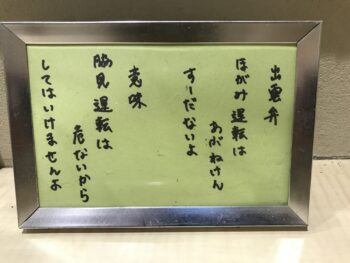 出雲弁
ほがみ運転は
あがねけん
すーだないよ
意味
脇見運転は
危ないから
してはいけませんよ